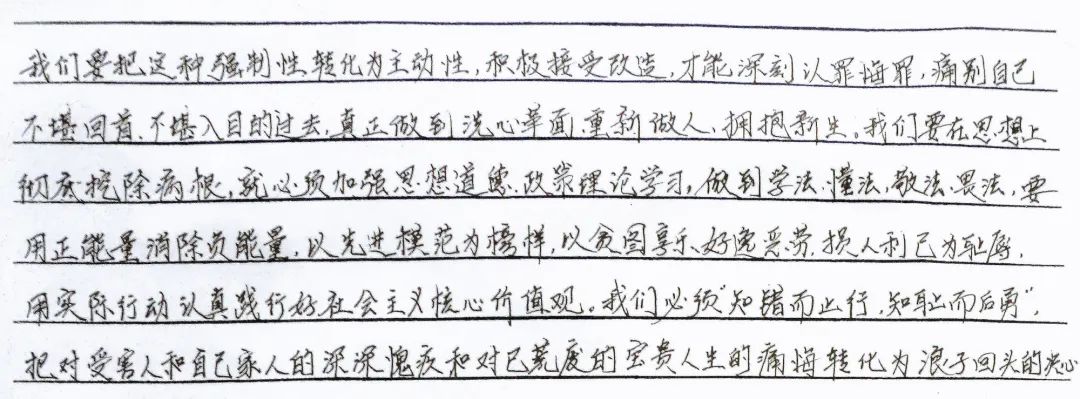 我们要把这种强制性转化为主动性,积极接受改造,才能深刻认罪悔罪,痛别自己
不堪回首、不堪入目的过去,真正做到洗心革面、重新做人、拥抱新生。我们要在思想上
彻底挖除病根,就必须加强思想道德、政策理论学习,做到学法、懂法、敬法、畏法,要
用正能量消除负能量,以先进模范为榜样,以贪图享乐、好逸恶劳、损人利己为耻辱,
用实际行动认真践行好社会主义核心价值观。我们必须“知错而止行,知耻而后勇”,
把对受害人和自己家人的深深愧疚和对已荒废的宝贵人生的痛悔转化为浪子回头的决心